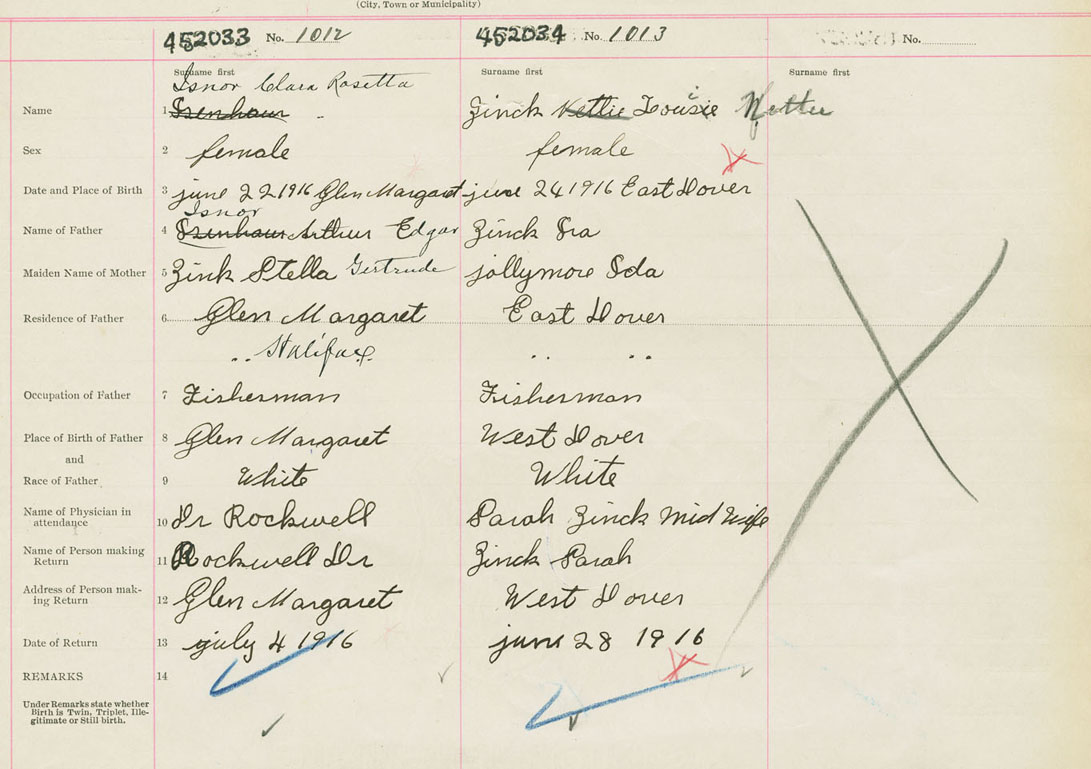 (City, Town or Municipality)
452033 No. 1012 452034 No. 1013 No.
Surname first Surname first Surname first
Isnor Clara Rosetta
Name 1 Isenhaur Zinck Nettie Louisie Nettie
Sex 2 female female
Date and Place of Birth 3 june 22 1916 Glen Margaret june 24 1916 East Dover
Isnor
Name of Father 4 Isenhaur Arthur Edgar Zinck Ira
Maiden Name of Mother 5 Zink Stella Gertrude jollymore Ida
Residence of Father 6 Glen Margaret East Dover
.. Halifax .. ..
Occupation of Father 7 Fisherman Fisherman
Place of Birth of Father 8 Glen Margaret West Dover
and
Race of Father 9 White White
Name of Physician in
attendance 10 Dr Rockwell Sarah Zinck Mid Wife
Name of Person making
Return 11 Rockwell Dr Zinck Sarah
Address of Person mak-
ing Return 12 Glen Margaret West Dover
Date of Return 13 july 4 1916 june 28 1916
REMARKS 14
Under Remarks state whether
Birth is Twin, Triplet, Ille-
gitimate or Still birth.